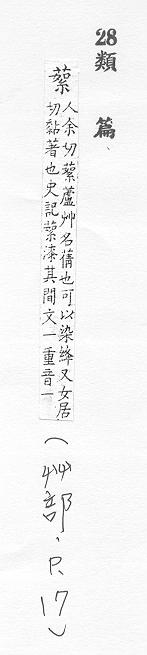 28類篇、
蕠
人余切蕠蘆艸名蒨也可以染絳又女居
切黏著也史記蕠漆其間文一重音一
(艸部、P.17)